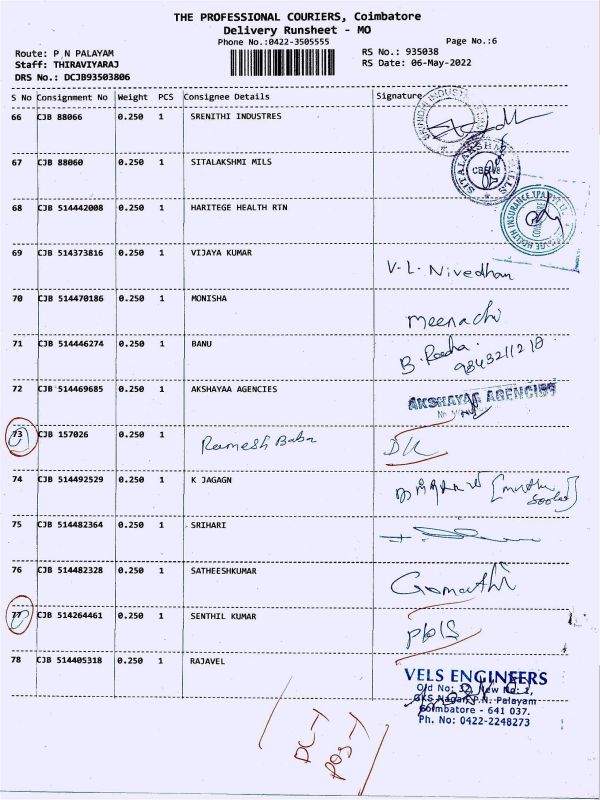 THE PROFESSIONAL COURIERS, Coimbatore
Delivery Runsheet - MO
Phone No.:0422-3505555 Page No.:6
Route: P N PALAYAM RS No.: 935038
Staff: THIRAVIYARAJ RS Date: 06-May-2022
DRS No.: DCJB93503806
S No Consignment No Weight PCS Consignee Details Signature
66 CJB 88066 0.250 1 SRENITHI INDUSTRES
67 CJB 88060 0.250 1 SITALAKSHMI MILS
68 CJB 514442008 0.250 1 HARITEGE HEALTH RTN
69 CJB 514373816 0.250 1 VIJAYA KUMAR V.L. Nivedhan
70 CJB 514470186 0.250 1 MONISHA Meenachi
71 CJB 514446274 0.250 1 BANU B. Radha. 9843211218
72 CJB 514469685 0.250 1 AKSHAYAA AGENCIES AKSHAYAA AGENCIES
73 CJB 157026 0.250 1 Ramesh Baba DL
74 CJB 514492529 0.250 1 K JAGAGN
75 CJB 514482364 0.250 1 SRIHARI
76 CJB 514482328 0.250 1 SATHEESHKUMAR Gomathi
77 CJB 514264461 0.250 1 SENTHIL KUMAR
78 CJB 514405318 0.250 1 RAJAVEL VELS ENGINEERS
Old No: 32, New No: 1,
GKS Nagar, P.N. Palayam
Coimbatore - 641 037.
Ph. No: 0422-2248273
DL-1